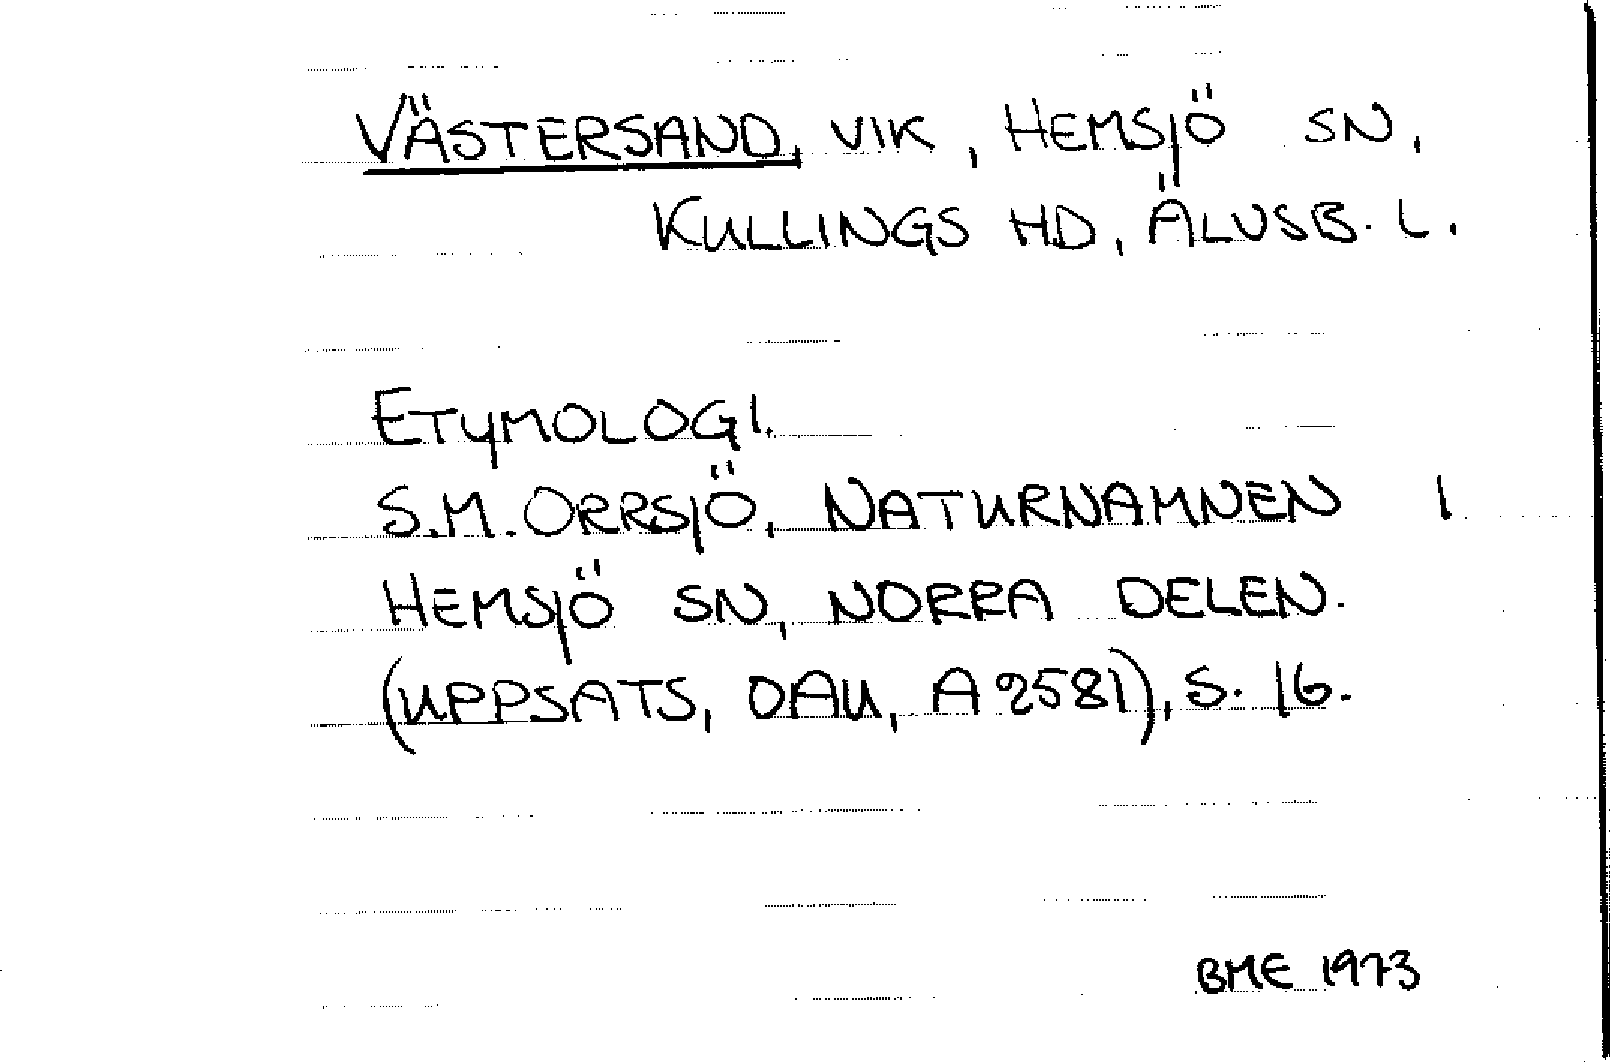 VÄSTERSAND, VIK, HEMSJÖ SN,
KULLINGS HD, ÄLVSB. L.
ETYMOLOGI.
S.M. ORRSJÖ, NATURNAMNEN I
HEMSJÖ SN, NORRA DELEN.
(UPPSATS, OAU, A 2581), S. 16.
BME 1973